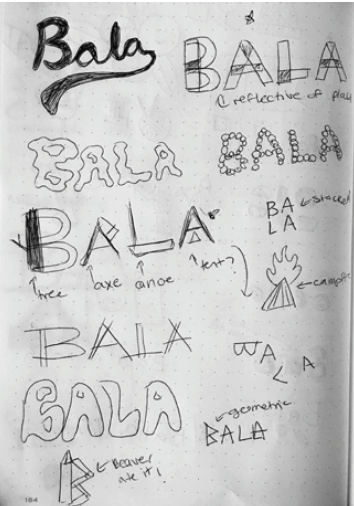 Bala
BALA
reflective of place
BALA
BALA
BALA
tree
axe
canoe
tent?
BA
LA
stacked
campfire
BALA
BA
L A
BALA
geometric
BALA
B
Beaver
ate it!
184